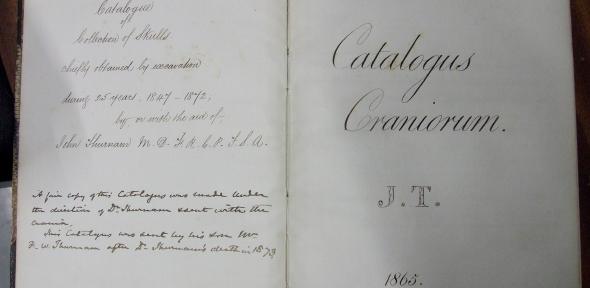 Catalogue
of
Collection of Skulls
chiefly obtained by excavation
during 25 years, 1847-1872;
by, or with the aid of-
John Thurnam M.D. F.R.C.P. F.S.A.
A fair copy of this Catalogue was made under
the direction of Dr. Thurnam & sent with the
crania.
This Catalogue was sent by his son Mr.
F. W. Thurnam after Dr. Thurnam's death in 1873
Catalogus
Craniorum.
J.T.
1865.